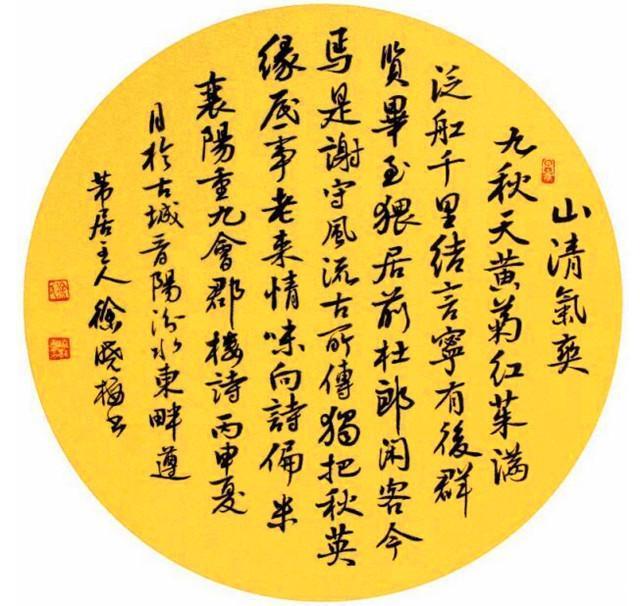 山清氣爽
九秋天黄菊红茱满
泛舡千里结言寧有後群
贤畢至猥居前杜郎闲客今
焉是謝守風流古所傳獨把秋英
缘底事老来情味向詩偏米
襄陽重九會郡樓詩丙申夏
月於古城晋陽汾水東畔遵
芾居主人徐晓梅书